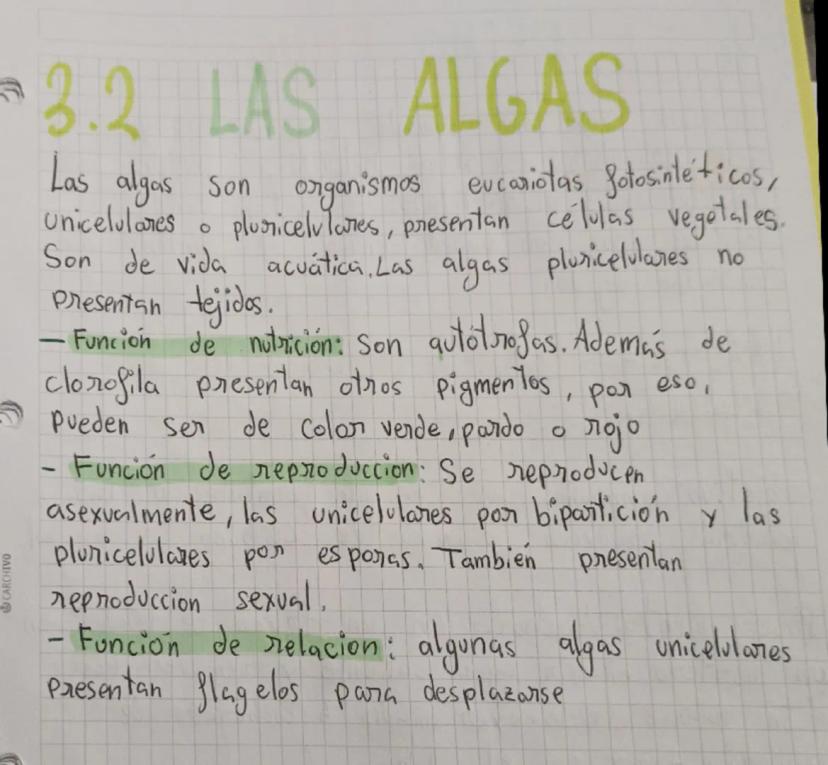 3.2 LAS ALGAS
Las algas son organismos eucariotas fotosintéticos,
unicelulares o pluricelulares, presentan células vegetales.
Son de vida acuática. Las algas pluricelulares no
presentan tejidos.
— Función de nutrición: Son autótrofas. Además de
clorofila presentan otros pigmentos, por eso,
pueden ser de color verde, pardo o rojo
- Función de reproduccion: Se reproducen
asexualmente, las unicelulares por bipartición y las
pluricelulares por esporas. También presentan
reproduccion sexual.
- Función de relacion: algunas algas unicelulares
presentan flagelos para desplazarse
CARCHIVO